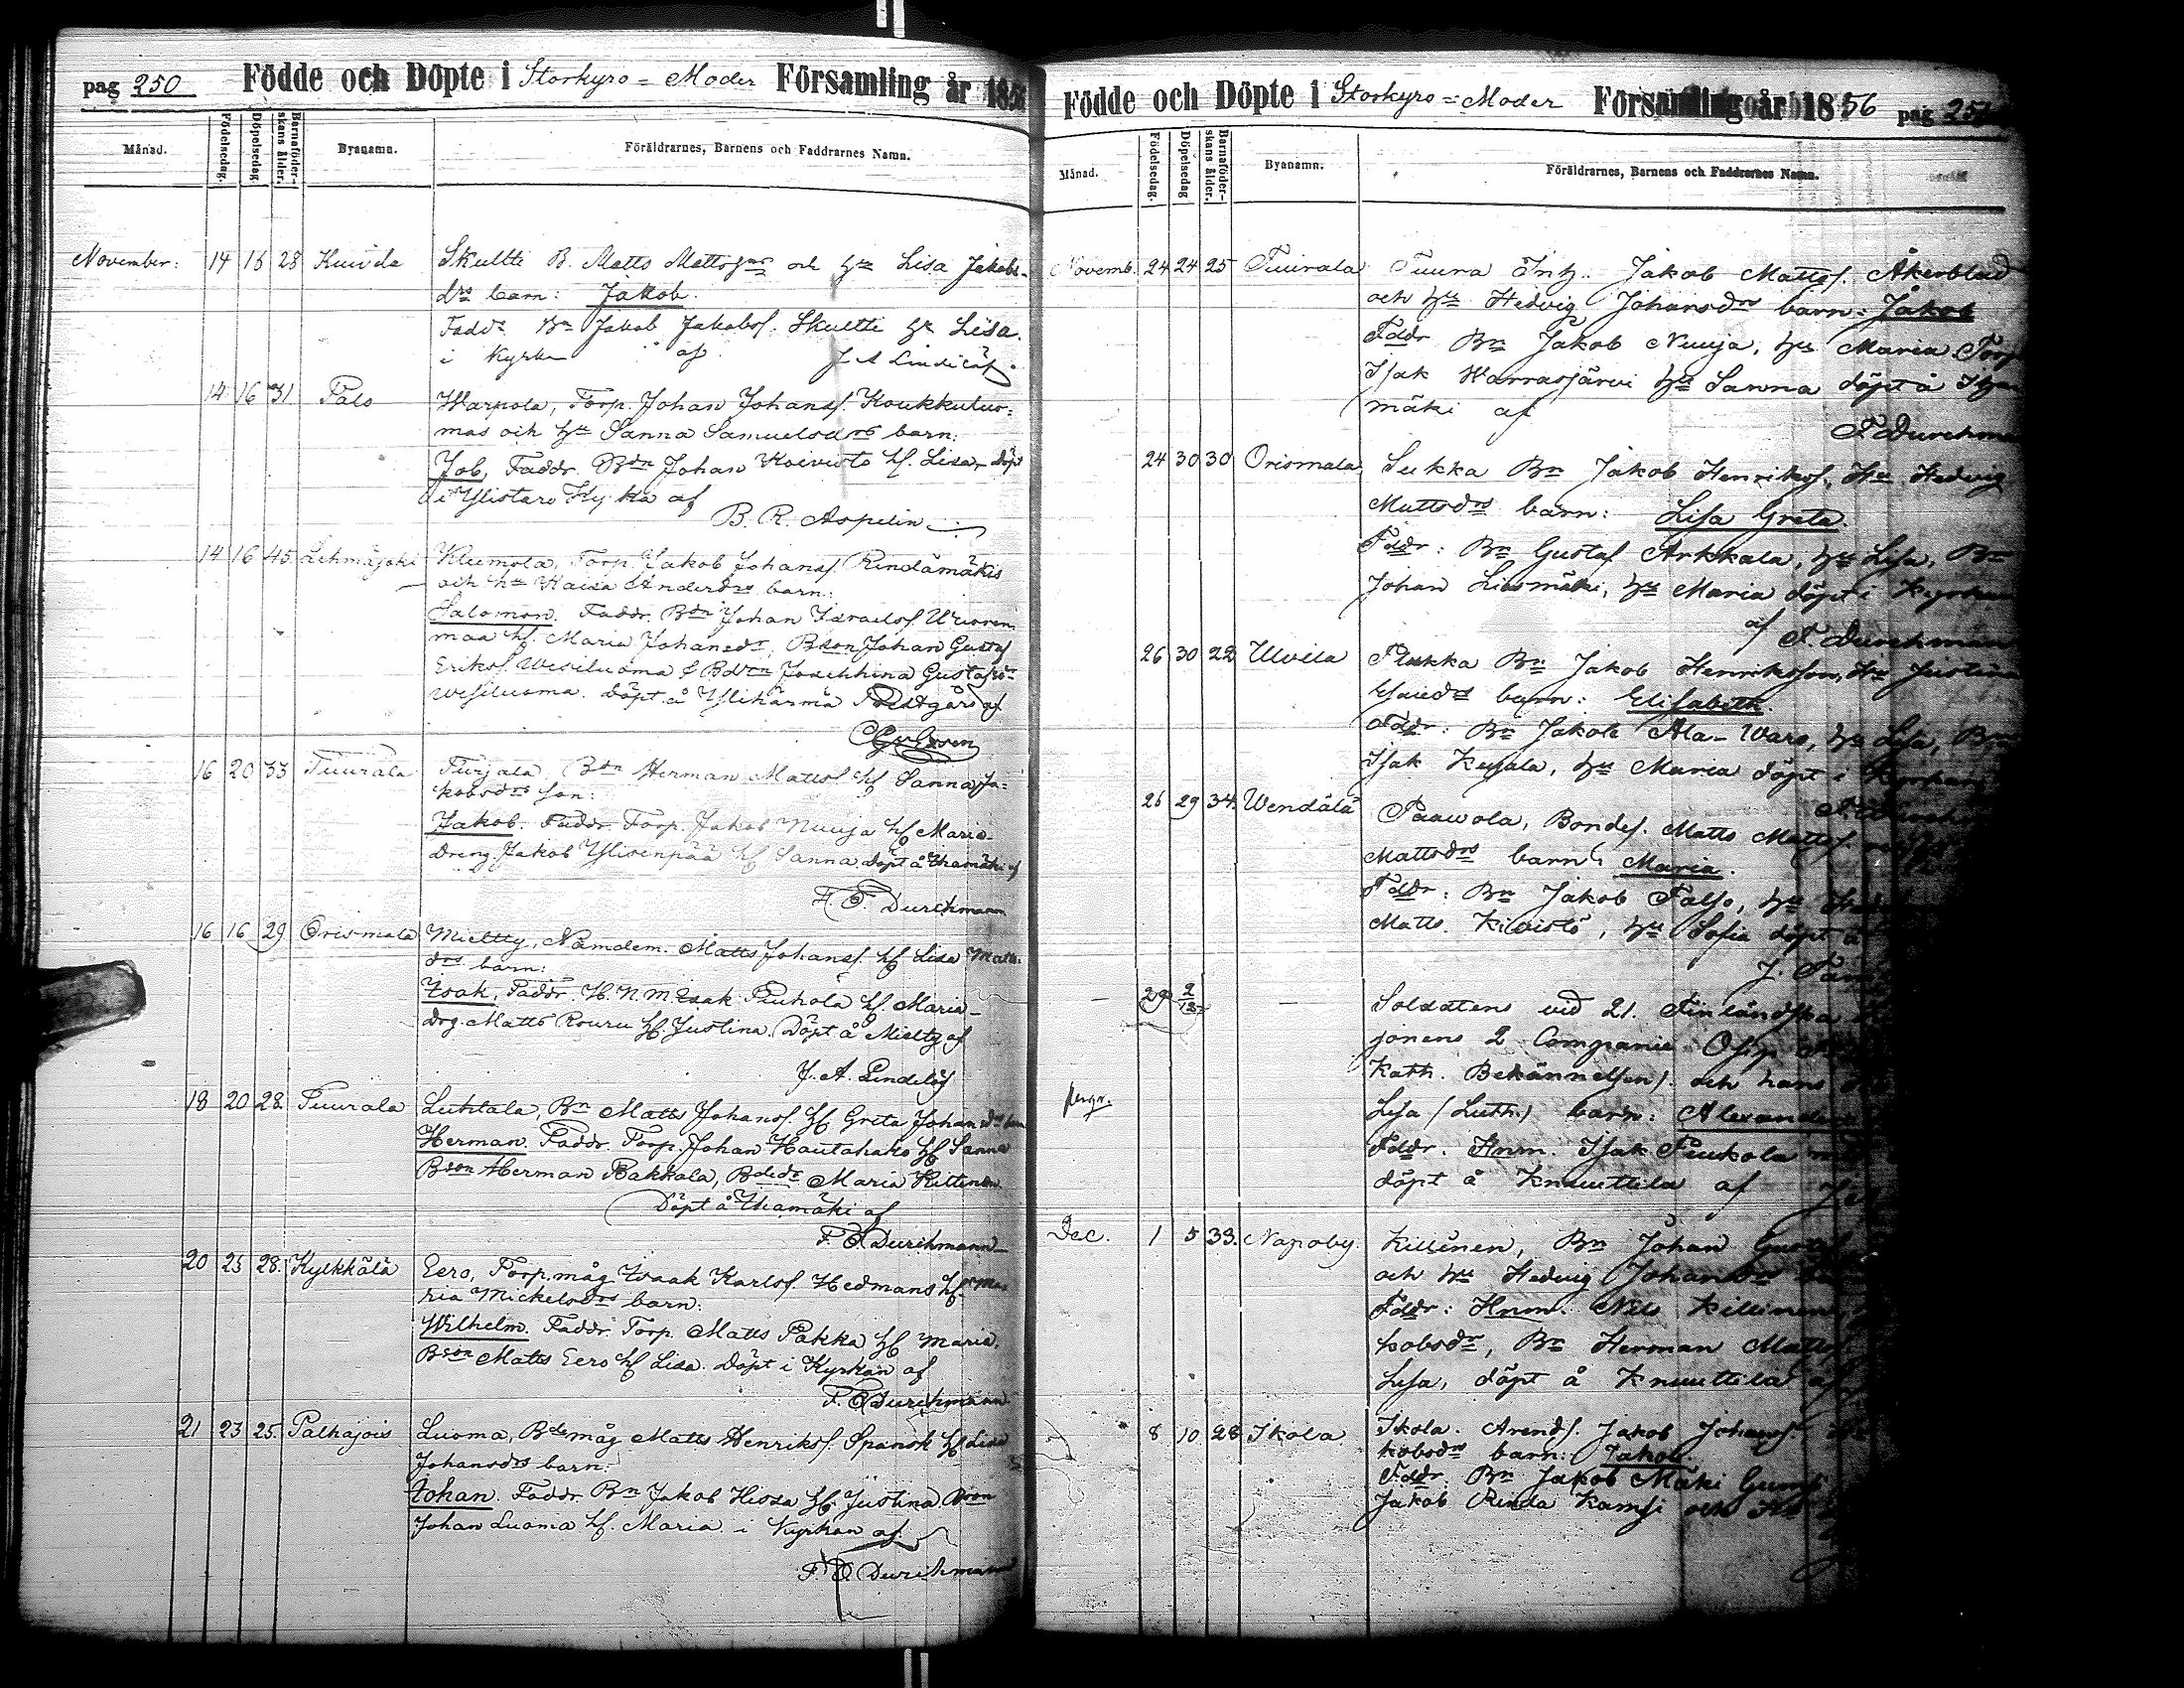 pag 250 Födde och Döpte i Storkyro = Moder Församling år 1856
Månad. Födelsedag. Döpelsedag. Barnaföderskans ålder. Byanamn. Föräldrarnes, Barnens och Faddrarnes Namn.
November: 14 15 28 Kuivila Skultti B. Matts Mattsson och h Lisa Jakobs-
drs barn: Jakob.
Faddr Bn Jakob Jakobsf. Skultti h Lisa.
i Kyrkan af J A Lindelöf.
14 16 31 Palo Warpola, Torp. Johan Johansf. Koukkuluo=
mas och hu Sanna Samuelsdrs barn:
Job, Faddr. Bdn Johan Koivisto hf. Lisa, döpt
i Ylistaro Kyrka af
B. R. Aspelin
14 16 45 Lehmäjoki Klemola, Torp. Jakob Johansf. Rindamäkis
och hu Kaisa Andersdrs barn:
Salomon. Faddr. Bdn Johan Israelsf.
maa hf. Maria Johansdr, Bson Johan Gustaf
Eriksf. Wesiluoma & Bdron Josephina Gustafsdr
Wesiluoma. döpt å Ylihärmä Prestgård af
16 20 33 Tuurala Turjala. Bdn Herman Mattsf. hf Sanna Ja=
kobsdrs son:
Jakob. Faddr. Torp. Jakob Nuuja hf Maria
dreng. Jakob Ylisenpää hf Sanna döpt å Ikamäki af
F. O. Durchmann
16 16 29 Orismala Mieltty, Nämdem. Matts Johansf. hf Lisa Matts-
drs barn:
Isak, Faddr. H. N. M. Isak Piuhola hf. Maria
drg. Matts Rouru hf. Justina. Döpt å Mieltty af
J. A. Lindelöf
18 20 28. Tuurala Luhtala, Bn Matts Johansf. hf Greta Johansdrs barn
Herman. Faddr. Torp. Johan Hautahako hf Sanna
Bson Herman Pakkala, Bdedr Maria Kittinen
Döpt å Ikamäki af
F. O Durchmann
20 23 28. Kylkkälä Eero, Torp.måg Isaak Karlsf. Hedmans hf. Ma-
ria Mickelsdrs barn:
Wilhelm. Faddr. Torp. Matts Pakka hf Maria.
Bson Matts Eero hf Lisa. Döpt i Kyrkan af
F. O Durchmann
21 23 25. Palhojois Luoma, Bdemåg Matts Henriksf. Spansk hf Lisa
Johansdrs barn:
Johan. Faddr. Bn Jakob Hissa hf. Justina Bson
Johan Luoma hf. Maria i Kyrkan af
F. O Durchmann
Födde och Döpte i Storkyro = Moder Församling år 1856 pag 251
Månad. Födelsedag. Döpelsedag Barnaföderskans ålder. Byanamn. Föräldrarnes, Barnens och Faddrarnes Namn.
Novemb. 24 24 25 Tuurala Tuura Inh. Jakob Mattsf. Åkerblad
och hu Hedvig Johansdrs barn: Jakob
Fddr Bn Jakob Nuuja, hu Maria Torp
Isak Harrasjärvi hu Sanna döpt å
mäki af
F Durchma
24 30 30 Orismala Sukka Bn Jakob Henriksf. Hu Hedvig
Mattsdrs barn: Lisa Greta.
Fddr: Bn Gustaf Arkkala, hu Lisa, Bn
Johan Liismäki, hu Maria döpt i Kyrkan
af F. Durchmann
26 30 22 Ulvila Plukka Bn Jakob Henriksson, Hu Justina
Esaiædrs barn: Elisabeth.
Fddr: Bn Jakob Ala-Waro, hu Lisa, Bn
Isak Keijala, hu Maria döpt i Kyrkan
26 29 34. Wendälä Paawola, Bondes. Matts Mattsf.
Mattsdrs barn: Maria.
Fddr: Bn Jakob Palso, hu
Matts Kivistö, hu Sofia döpt å
J.
– 29 2/12 – Soldatens vid 21. Finländska
jonens 2 Companie Osip
Kath. Bekännelsen) och hans
Lisa (Luth.) barn: Alexander
Fddr. Hnm. Isak Piuhola
döpt å Knuuttila af
Dec. 1 5 33. Napoby. Killinen, Bn Johan Gustaf
och hu Hedvig Johansdrs
Fddr: Hnm. Nils Killinen
kobsdr, Bn Herman Mattsf
Lisa, döpt å Knuuttila af
8 10 28 Ikola Ikola. Arends. Jakob Johansf.
kobsdrs barn: Jakob.
Fddr. Bn Jakob Mäki
Jakob Rinda Kamsi och